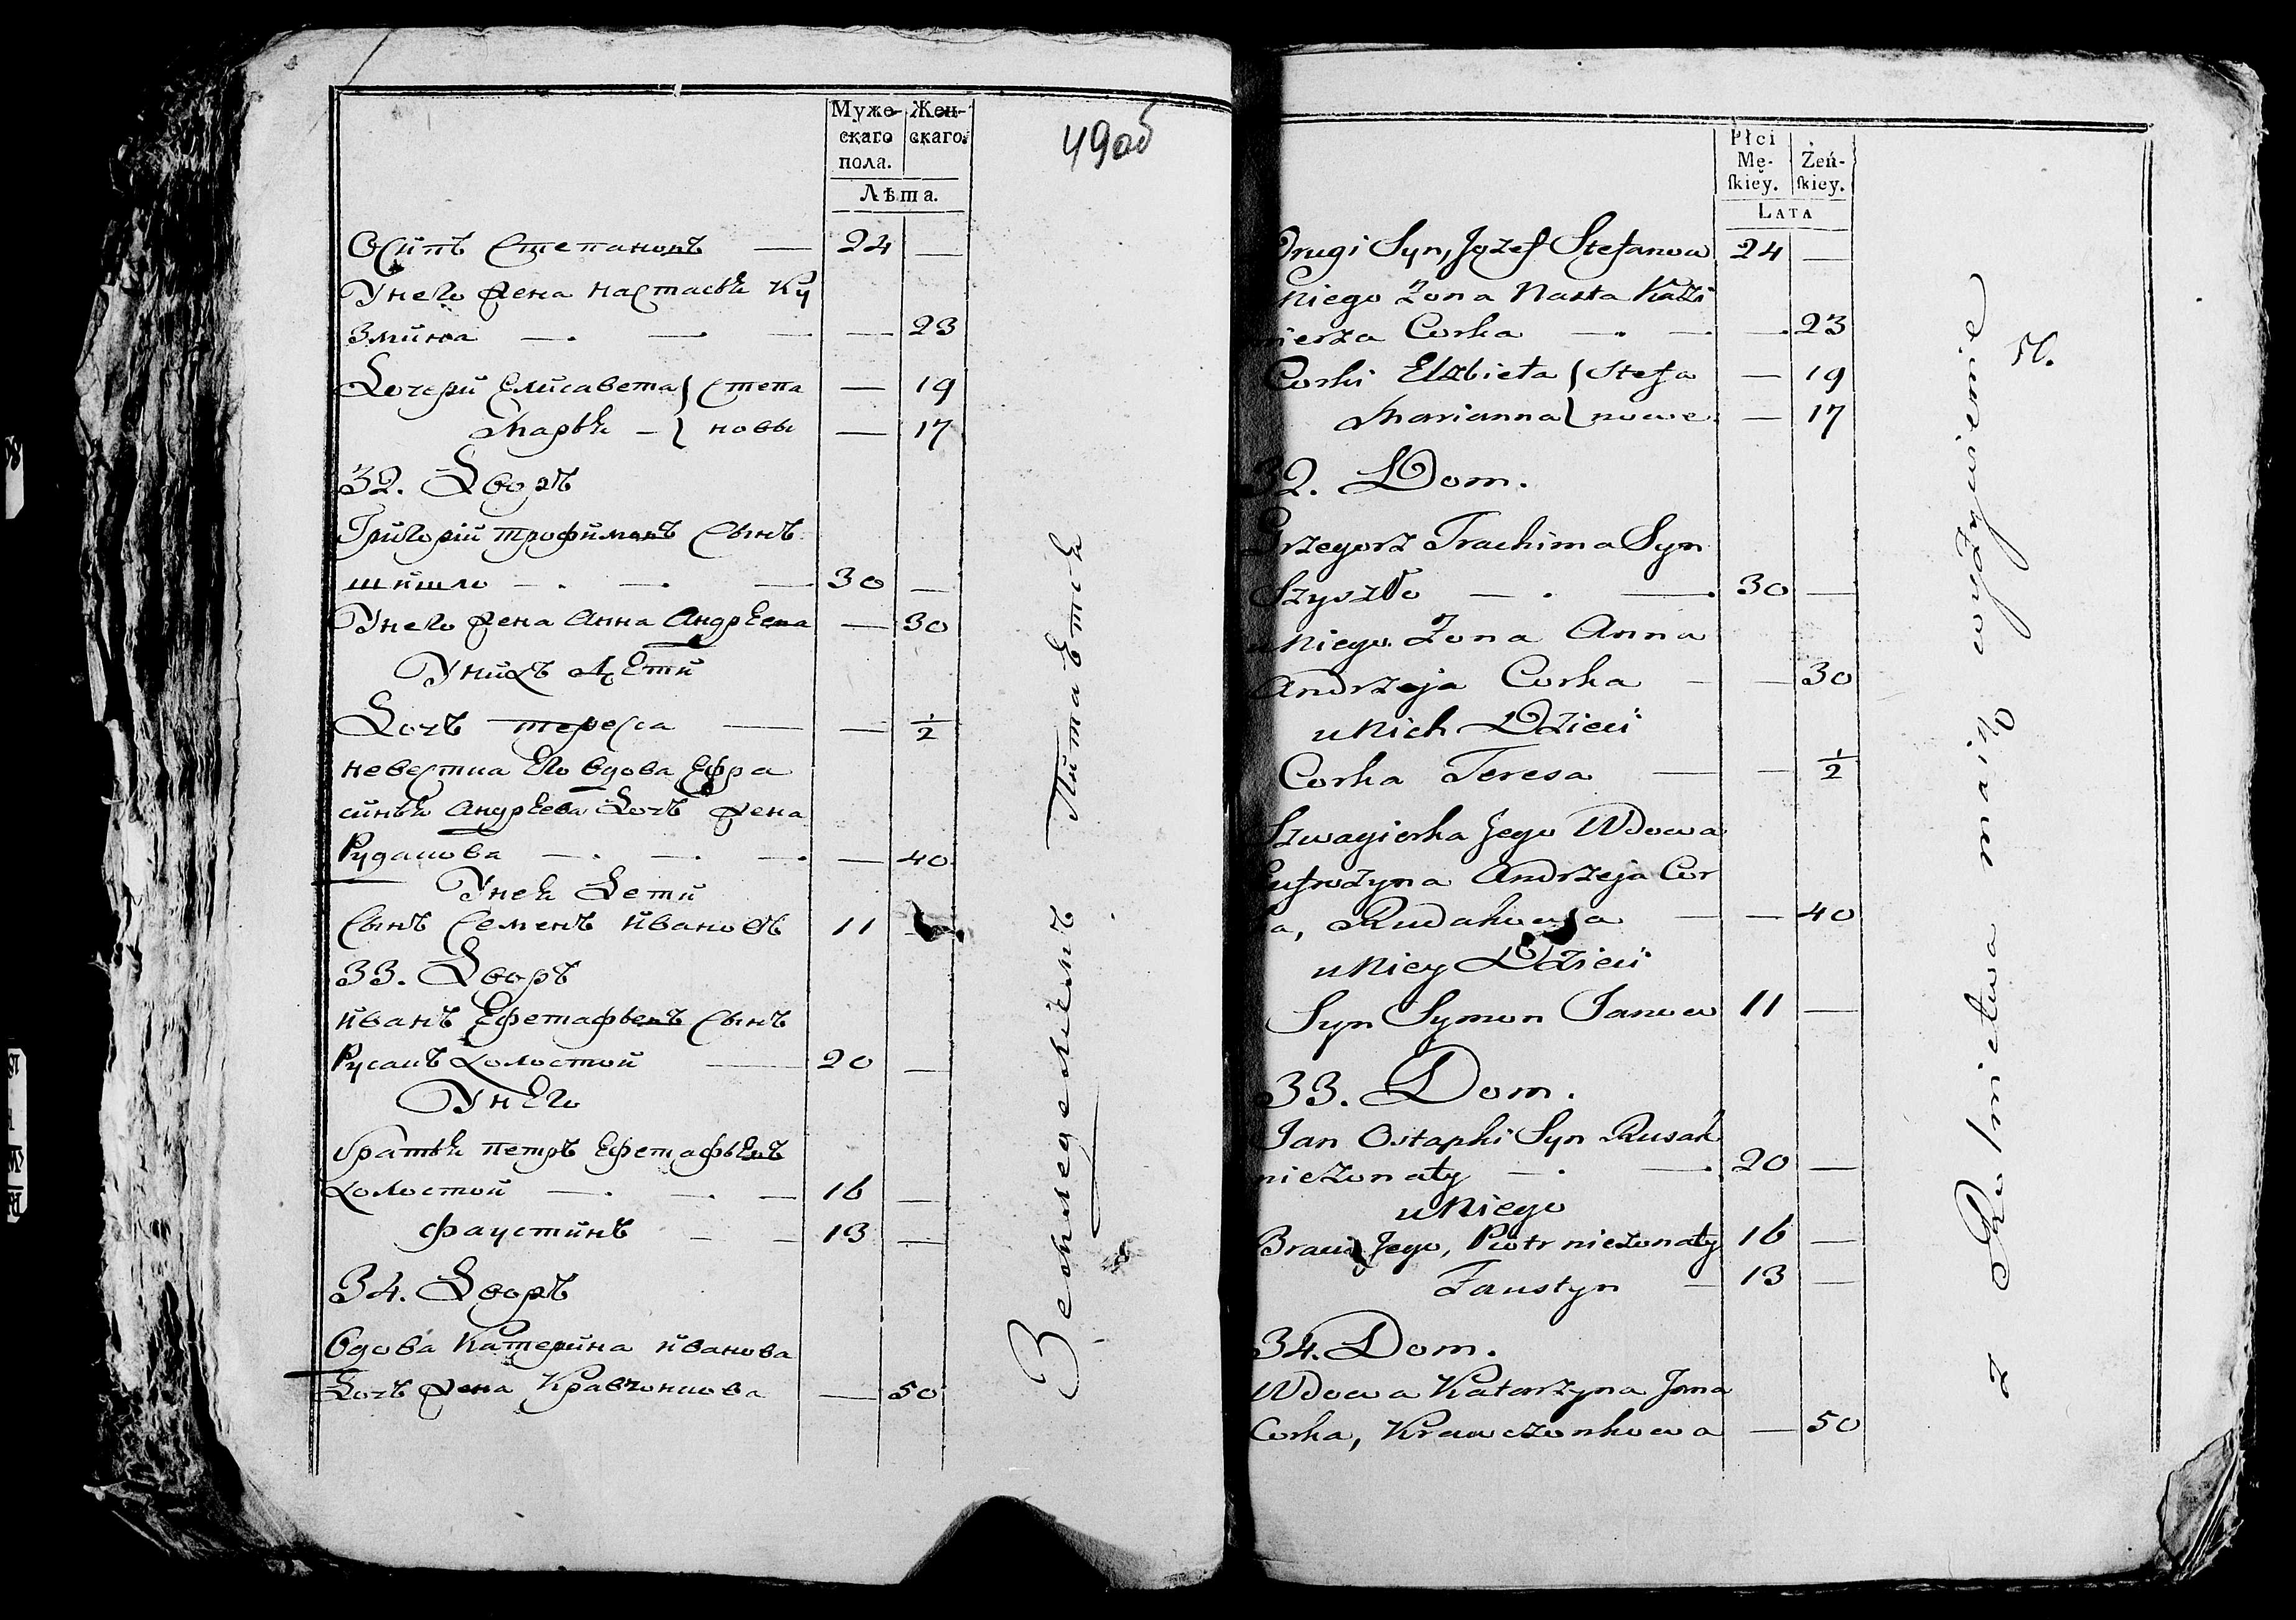 Муже- Жен-
скаго скаго.
пола.
Лѣта.
49об
Осипъ Степановъ — 24 —
У него жена Настасья Ку
змина — — — — 23
Дочери Елисавета } Степа — 19
Марья — } новы — 17
32. Дворъ
Григорій Трофимовъ сынъ
Шишло — — — 30 —
У него жена Анна Андрѣева — 30
У нихъ дѣти
Дочь Тереса — — ½
невестка Его вдова Ефро
синья Андрѣева дочь жена
Рудакова — — — — 40
У неи дети
сынъ Семенъ Ивановъ 11 —
33. Дворъ
Иванъ Ефстафьевъ сынъ
Русакъ холостой — 20 —
У него
братья Петръ Ефстафьевъ
холостой — — — 16 —
Фаустинъ — — 13 —
34. Дворъ
Вдова Катерина Иванова
дочь жена Кравчонкова — 50
Земледелiемъ Питается
Płci
Mę- Żeń-
ſkiey. ſkiey.
LATA
50.
Drugi Syn, Jozef Stefanow 24 —
u Niego Żona Nasta Kaźi
mierza Corka — — — 23
Corki Elżbieta } Stefa — 19
Marianna } nowe — 17
32. Dom.
Grzegorz Trachima Syn
Szyszło — — 30 —
u Niego Żona Anna
Andrzeja Corka — — 30
u Nich Dzieci
Corka Teresa — — ½
Szwagierka Jego Wdowa
Eufrozyna Andrzeja Cor
ka, Rudakowa — — 40
u Niey Dzieci
Syn Symon Janow 11 —
33. Dom.
Jan Ostaphi Syn Rusak
nieżonaty — — 20 —
u Niego
Bracia Jego, Piotr nieżonaty 16 —
Faustyn — 13 —
34. Dom.
Wdowa Katarzyna Jana
Corka, Krawczonkowa — 50
z Rolnictwa maią wyżywienie